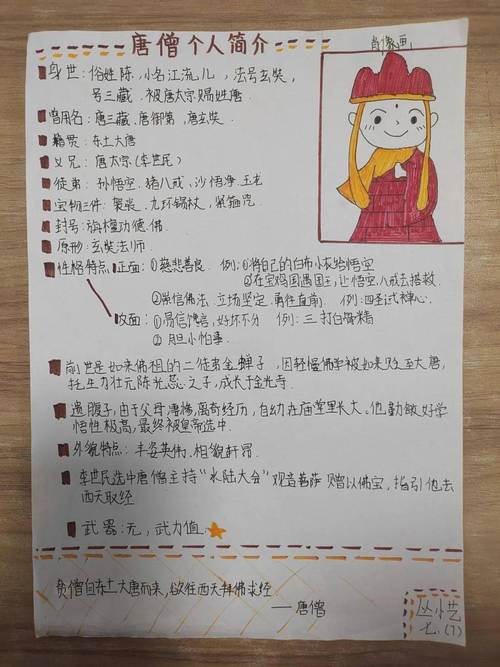 唐僧个人简介
肖像画
身世:俗姓陈,小名江流儿,法号玄奘,
号三藏.被唐太宗赐姓唐
曾用名:唐三藏.唐御弟,唐玄奘
籍贯:东土大唐
义兄:唐太宗(李世民)
徒弟:孙悟空.猪八戒,沙悟净.玉龙
宝物三件:袈裟.九环锡杖,紧箍咒.
封号:旃檀功德佛
原形:玄奘法师.
性格特点 正面:①慈悲善良. 例:①将自己的白布小衣给悟空
②在宝鸡国遇国王,让悟空,八戒去搭救.
②崇信佛法.立场坚定.勇往直前. 例:四圣试禅心.
反面:①易信馋言,好坏不分 例:三打白骨精
②胆小怕事.
前世是如来佛祖的二徒弟金蝉子,因轻慢佛学被如来贬至大唐,
托生为状元陈光蕊之子,成长于金光寺.
遗腹子,由于父母凄惨,离奇经历,自幼在庙堂里长大.他勤敏好学
悟性极高,最终被皇帝选中.
外貌特点:丰姿英伟.相貌轩昂.
李世民选中唐僧主持“水陆大会”观音菩萨赠以佛宝,指引他去
西天取经
武器:无,武力值.
贫僧自东土大唐而来,欲往西天拜佛求经
——唐僧
丛小艺
七.(7)